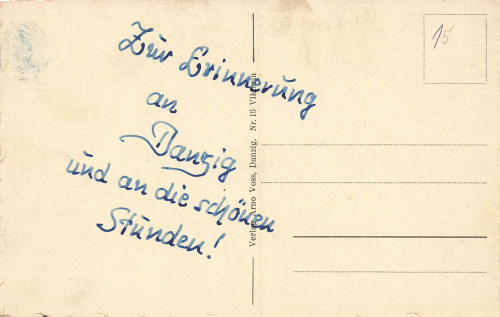 Zur Erinnerung
an
Danzig
und an die schönen
Stunden!
Verlag Arno Voss, Danzig. Nr. 16
15